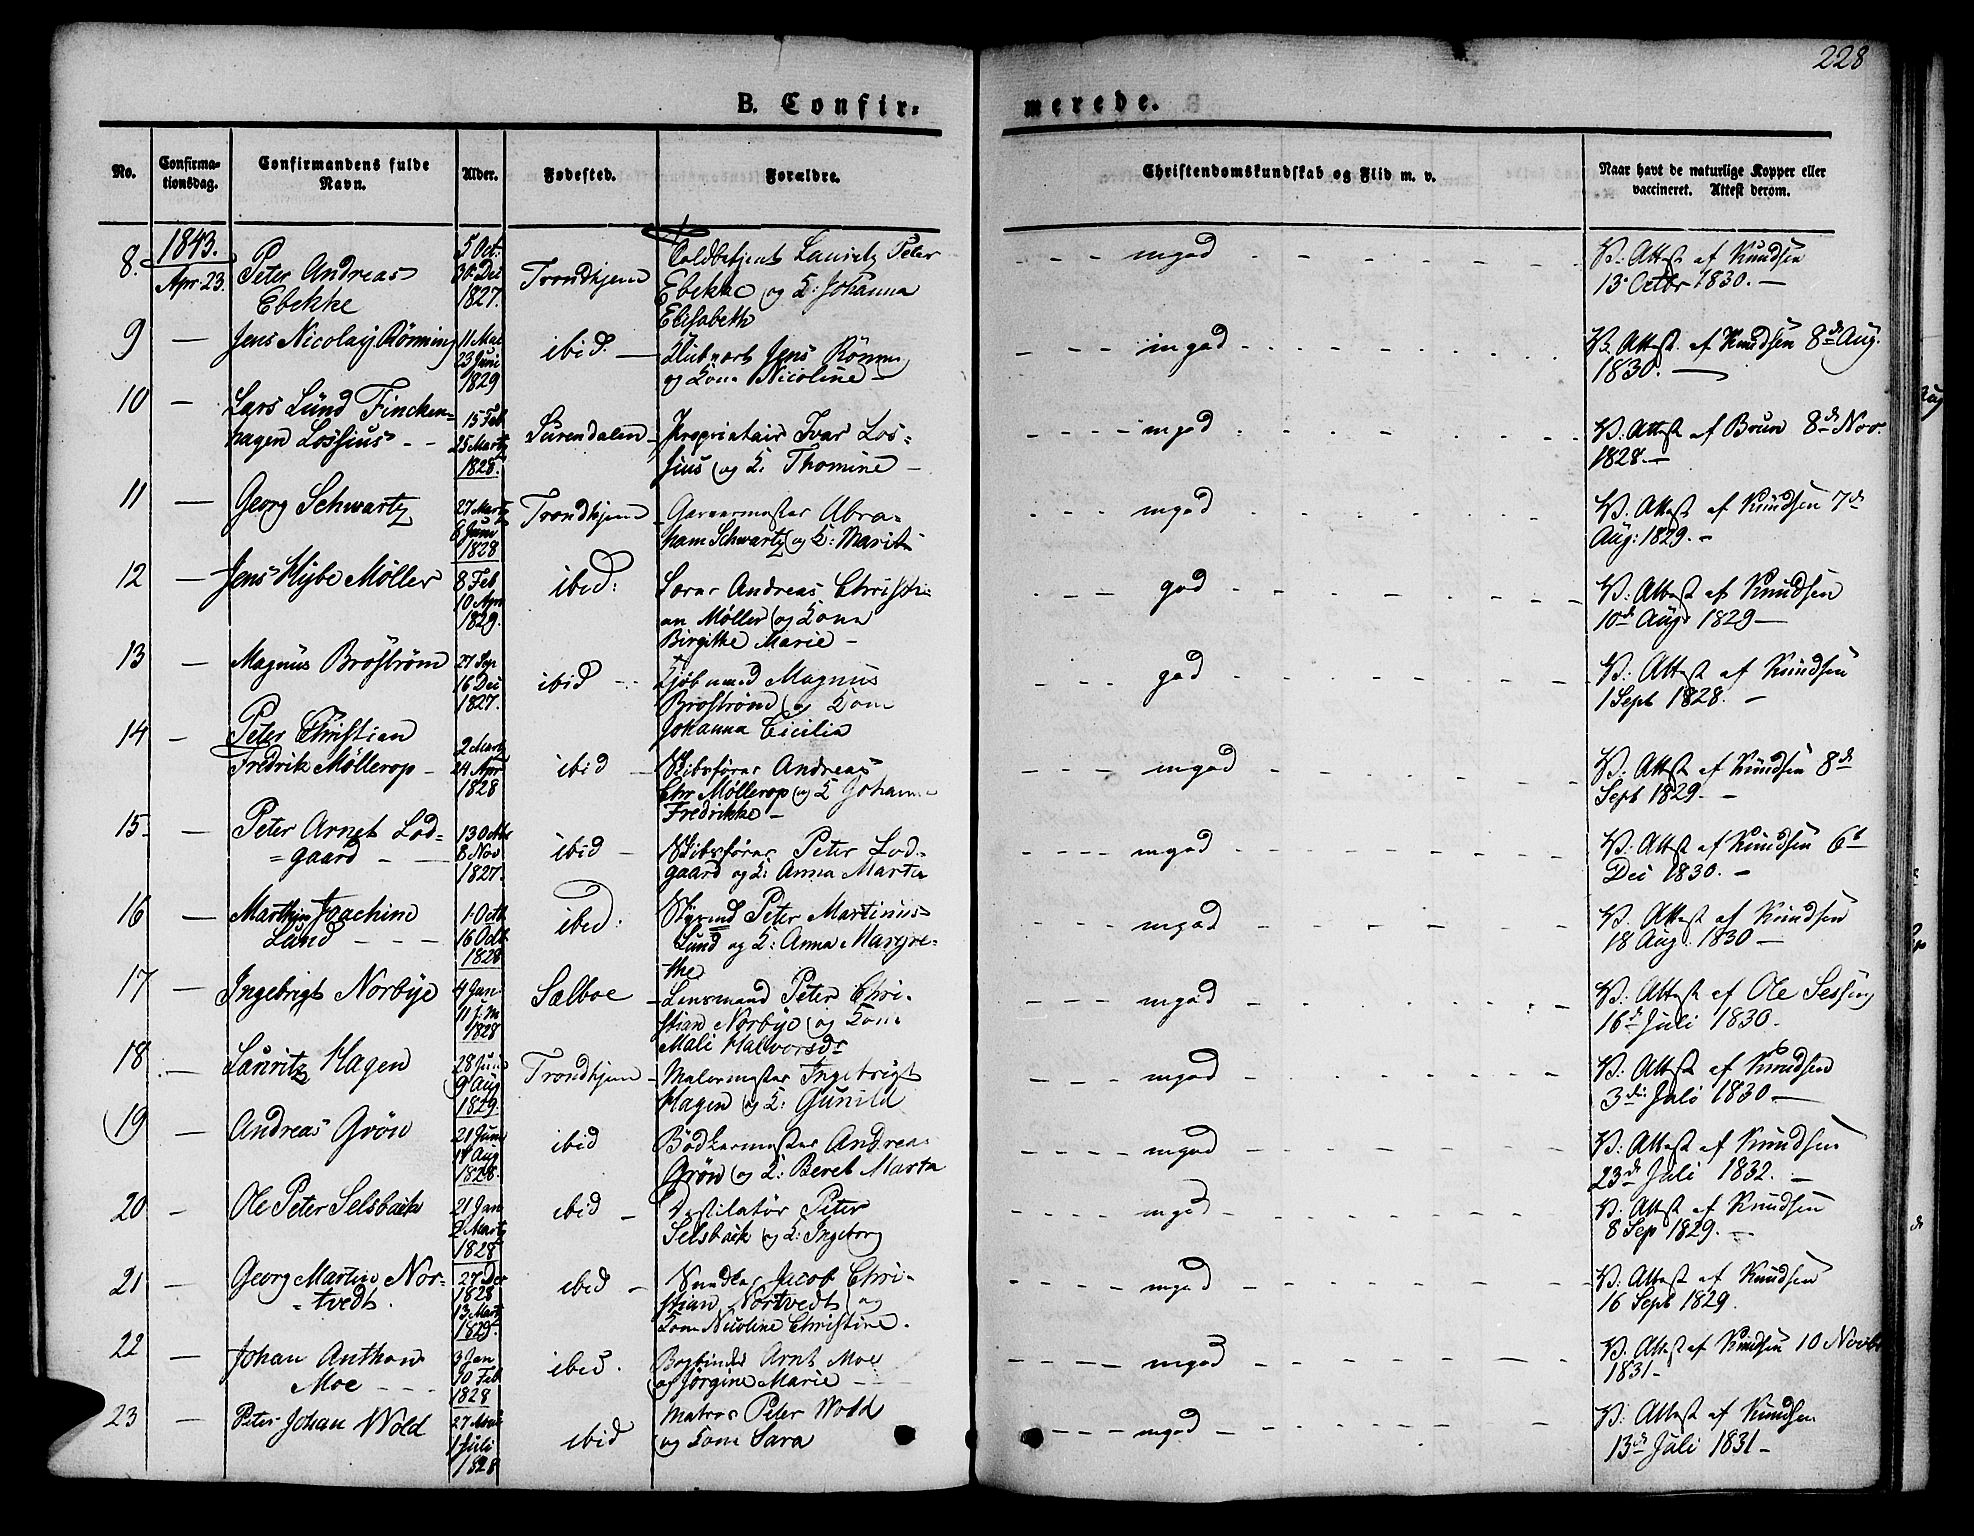 228
B. Confir=
merede.
No.
Confirma-
tionsdag.
Confirmandens fulde
Navn.
Alder.
Fødested.
Forældre.
Christendomskundskab og Flid m. v.
Naar havt de naturlige Kopper eller
vaccineret. Attest derom.
1843.
8. Apr. 23. Peter Andreas
Ebekke
5 Oct.
30 Dec
1827.
Trondhjem
Toldbetjent Lauritz Peter
Ebekke og K: Johanna
Elisabeth
mgod
V. Attest af Knudsen
13 Octbr 1830. —
9 — Jens Nicolay Rönning
11 Mai
23 Juni
1829
ibid. —
Jens Rönning
og Kone Nicoline —
mgod
V. Attest af Knudsen 8de Aug.
1830. —
10 — Lars Lund Fincken=
hagen Lossius - -
15 Feb
25 Martz
1828.
Surendalen
Proprietair Ivar Los=
sius og K: Thomine —
mgod
V. Attest af Brun 8de Nov.
1828. —
11 — Georg Schwartz
27 Martz
8 Juni
1828
Trondhjem
Garvermester Abra=
ham Schwartz og K: Marit
mgod
V. Attest af Knudsen 7de
Aug: 1829. —
12 — Jens Hybe Møller
8 Feb
10 Apr
1829.
ibid:
Andreas Christi=
an Møller og Kone
Birgitte Marie —
god
V: Attest af Knudsen
10de Aug 1829 —
13 — Magnus Broström
27 Sep
16 Dec
1827.
ibid - -
Kjöbmand Magnus
Broström og Kone
Johanna Cicilia
god
V: Attest af Knudsen
1 Sept 1828. —
14 — Peter Christian
Fredrik Møllerop -
2 Martz
24 Apr
1828
ibid —
Skibsförer Andreas
Chr Møllerop og K Johanna
Fredrikke —
mgod
V. Attest af Knudsen 8de
Sept 1829. —
15 — Peter Arnet Lod=
=gaard - —
13 Octbr
8 Nov
1827.
ibid —
Skibsförer Peter Lod=
gaard og K: Anna Marta
mgod
V. Attest af Knudsen 6te
Dec 1830. —
16 — Marthin Joachim
Lund - - -
1 Octb
16 Octb
1828
ibid:
Styrmd Peter Martinus
Lund og K: Anna Margre=
the
mgod
V. Attest af Knudsen
18 Aug. 1830 —
17 — Ingebrigt Norbye
4 Jan
1828
Sælboe
Lensmand Peter Chri=
stian Norbye og Kone
Mali Halvorsdr
mgod
V: Attest af Ole Sessing
16de Juli 1830.
18 — Lauritz Hagen
28 Juni
9 Aug
1829.
Trondhjem
Malermester Ingebrigt
Hagen og K: Gunild
mgod
V. Attest af Knudsen
3die Juli 1830 —
19 — Andreas Grön
21 Juni
17 Aug
1828.
ibid
Bödkermester Andreas
Grön og K: Beret Marta
mgod
V: Attest af Knudsen
23de Juli 1832. —
20 — Ole Peter Selsbäck
21 Jan
2 Martz
1828
ibid —
Destilatör Peter
Selsbäck og K: Ingeborg
mgod
V. Attest af Knudsen
8 Sep 1829. —
21 — Georg Martin Nor=
=tvedt.
27 Dec
1828
13 Martz
1829.
ibid —
Snedker Jacob Chri=
stian Nortvedt og
Kone Nicoline Christine.
mgod
V. Attest af Knudsen
16 Sept 1829.
22 — Johan Anthon
Moe - - -
3 Jan
10 Feb
1828
ibid.
Bogbinder Arnt Moe
og Jörgine Marie —
mgod
V. Attest af Knudsen 10 Novbr
1831 -
23 — Peter Johan Wold
27 Mai
1 Juli
1828
ibid
Matros Peter Wold
og Kone Sara
mgod
V. Attest af Knudsen
13de Juli 1831 -